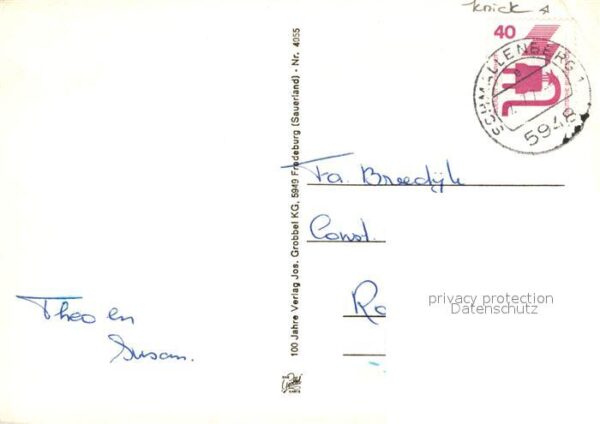 knick
40
SCHMALLENBERG 1
5948
100 Jahre Verlag Jos. Grobbel KG, 5949 Fredeburg (Sauerland) - Nr. 4055
Fa. Breedijk
Const.
Ro
privacy protection
Datenschutz
Theo en
Susan.